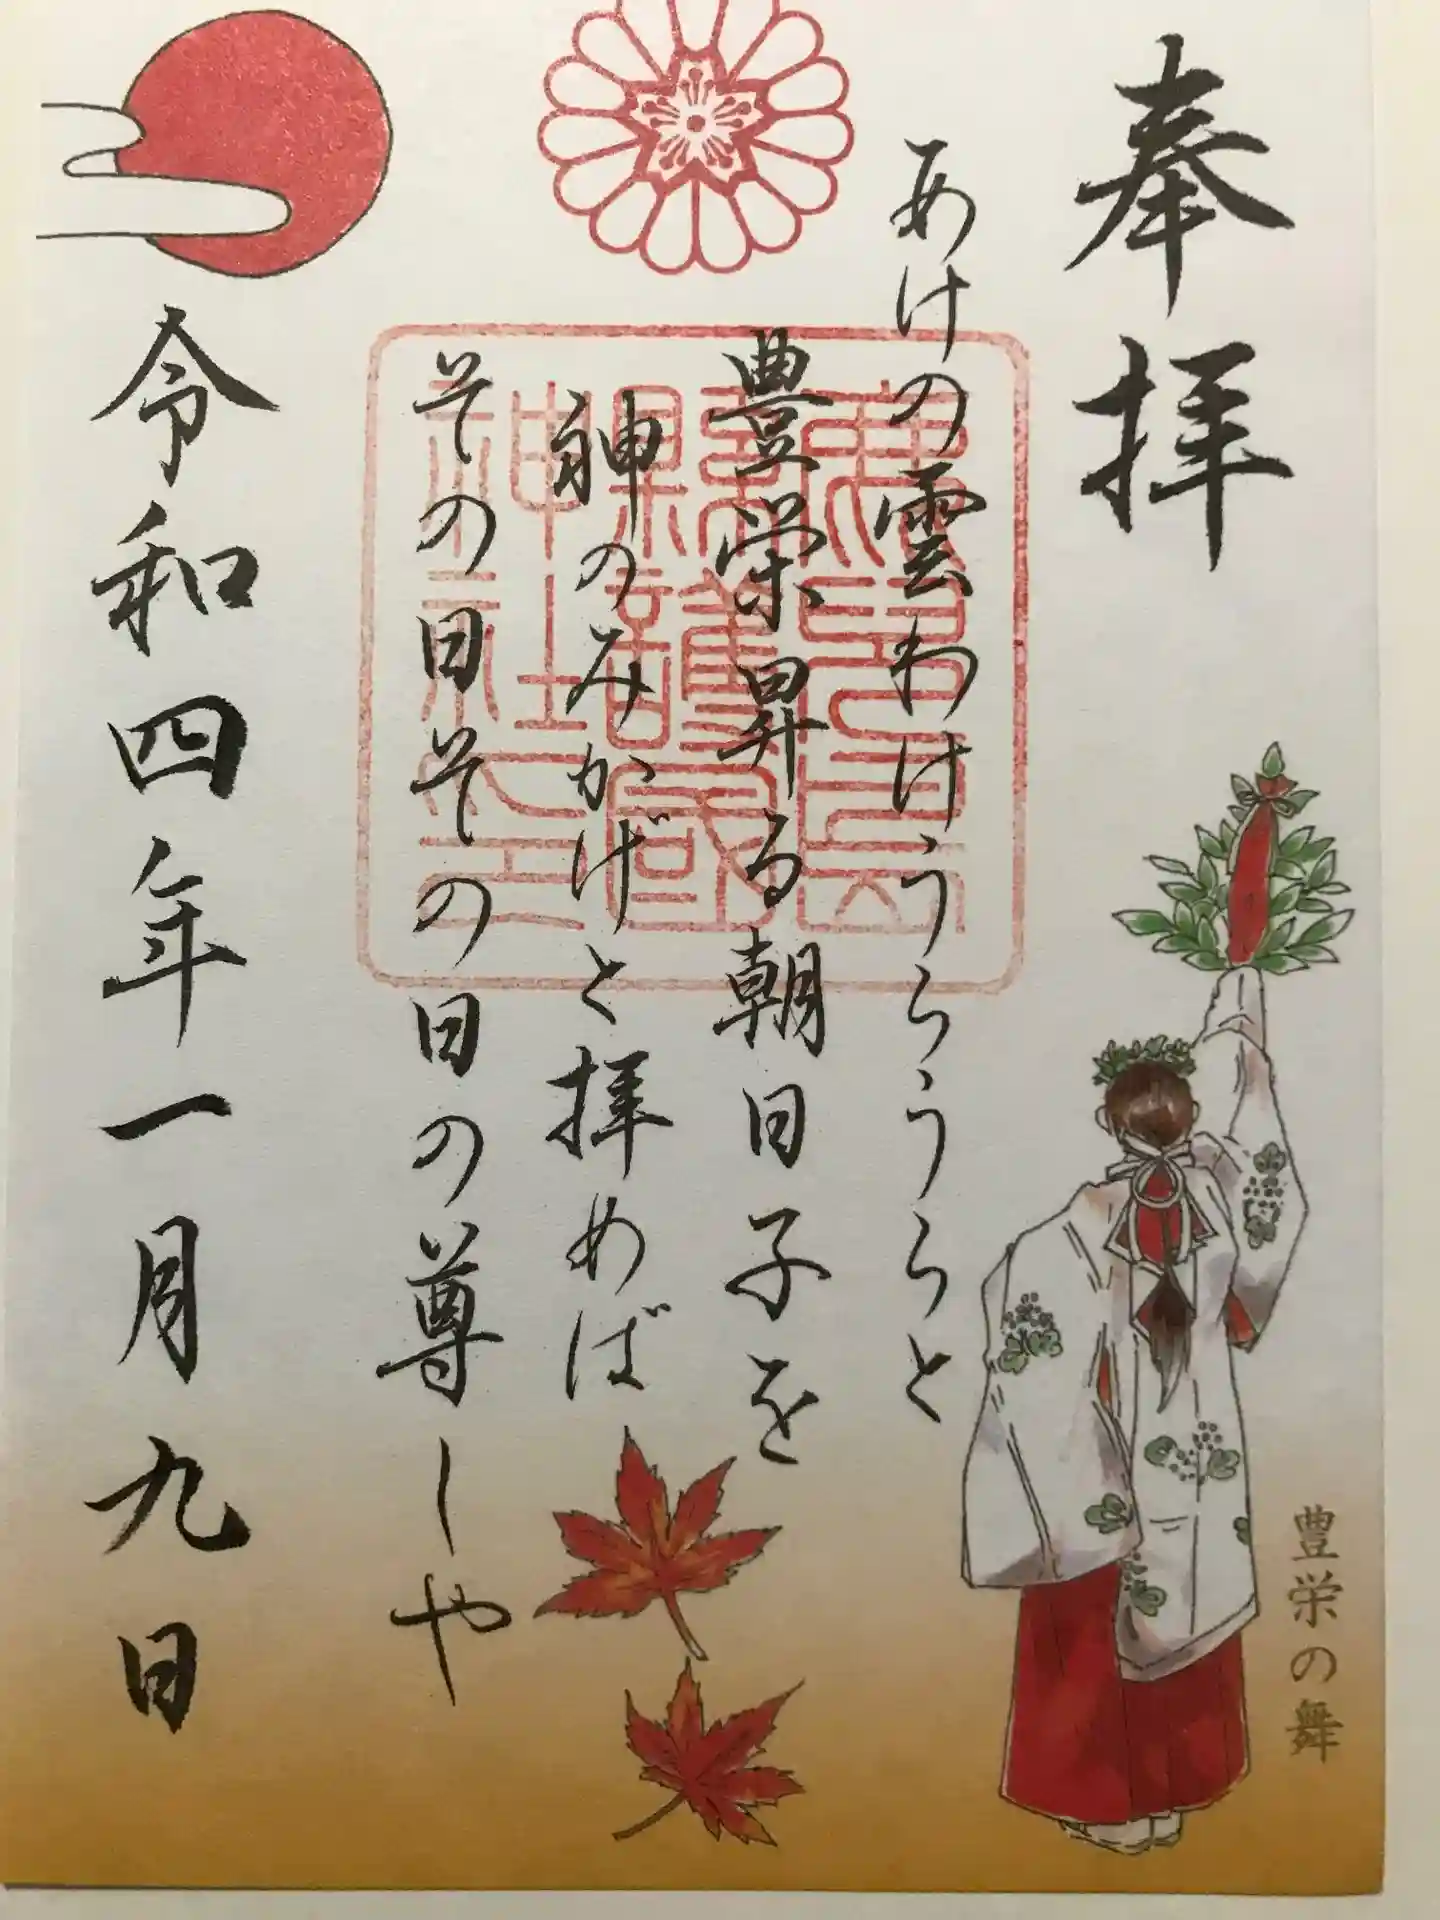 奉拝
あけの雲わけうらうらと
豊栄昇る朝日子を
神のみかげと拝めば
その日その日の尊しや
令和四年一月九日
鹿児島縣護國神社印
豊栄の舞